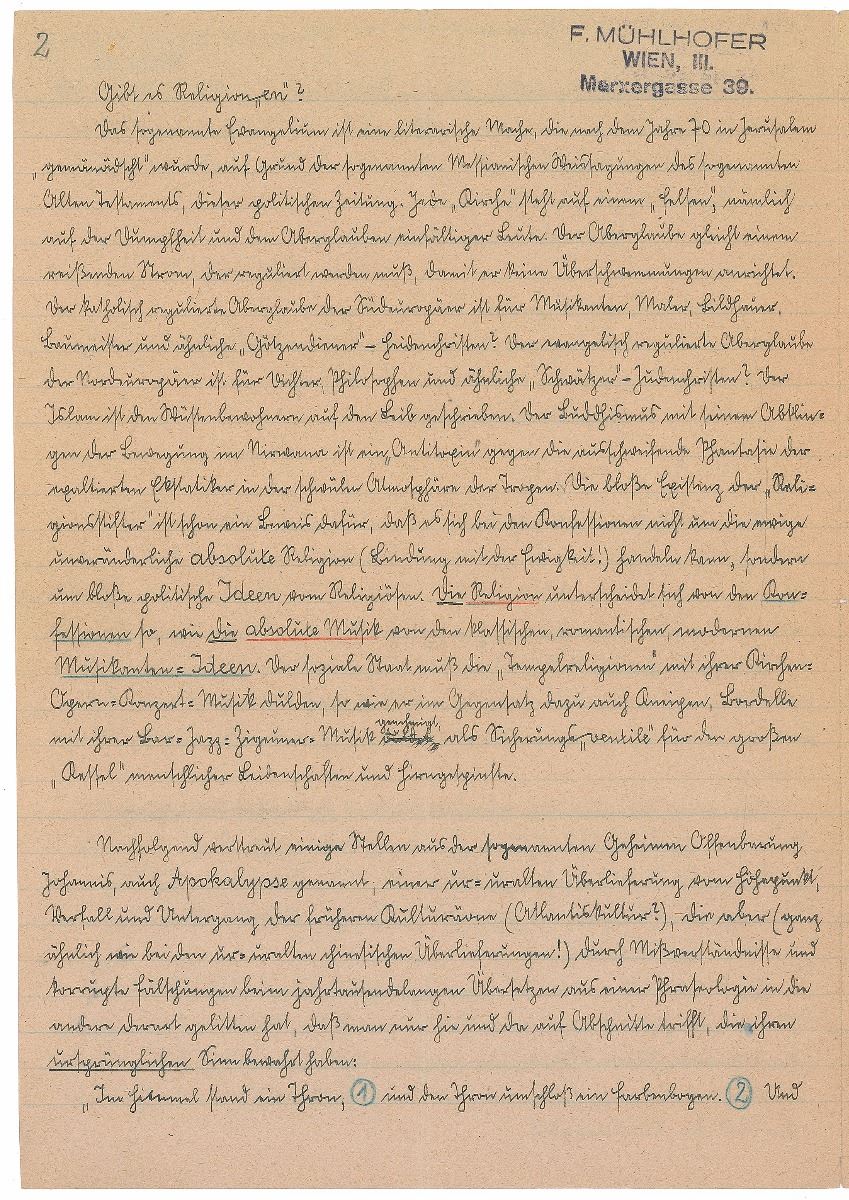 2
F. MÜHLHOFER
WIEN, III.
Marxergasse 39.
Gibt es Religion„en"?
Das sogenannte Evangelium ist eine literarische Mache, die nach dem Jahre 70 in Jerusalem
wurde, auf Grund der sogenannten Messianischen Weissagungen des sogenannten
Alten Testaments, dieser politischen Zeitung. Jede „Kirche" steht auf einem „Felsen", nämlich
auf der Dumpfheit und dem Aberglauben einfältiger Leute. Der Aberglaube gleicht einem
reißenden Strom, der reguliert werden muß, damit er keine Überschwemmungen anrichtet.
Der katholisch regulierte Aberglaube der Südeuropäer ist für Musikanten, Maler, Bildhauer,
Baumeister und ähnliche „Götzendiener" – Heidenchristen? Der evangelisch regulierte Aberglaube
der Nordeuropäer ist für Dichter, Philosophen und ähnliche „Schwätzer" – Judenchristen? Der
Islam ist den Wüstenbewohnern auf den Leib geschrieben. Der Buddhismus mit seinem Abklin=
gen der Bewegung im Nirwana ist ein „Antitoxin" gegen die ausschweifende Phantasie der
exaltierten Ekstatiker in der schwülen Atmosphäre der Tropen. Die bloße Existenz der „Reli=
gionsstifter" ist schon ein Beweis dafür, daß es sich bei den Konfessionen nicht um die ewige
unveränderliche absolute Religion (Bindung mit der Ewigkeit!) handeln kann, sondern
um bloße politische Ideen vom Religiösen. Die Religion unterscheidet sich von den Kon=
fessionen so, wie die absolute Musik von den klassischen, romantischen, modernen
Musikanten=Ideen. Der soziale Staat muß die „Tempelreligionen" mit ihrer Kirchen=
Opern=Konzert=Musik dulden, so wie er im Gegensatz dazu auch Kneipen, Bordelle
mit ihrer Bar=Jazz=Zigeuner=Musik genehmigt, als Sicherungs„ventile" für den großen
„Kessel" menschlicher Leidenschaften und Hirngespinste.
Nachfolgend verstreut einige Stellen aus der sogenannten Geheimen Offenbarung
Johannis, auch Apokalypse genannt, einer ur=uralten Überlieferung vom Höhepunkt,
Verfall und Untergang der früheren Kulturäone (Atlantiskultur?), die aber (ganz
ähnlich wie bei den ur=uralten chinesischen Überlieferungen!) durch Mißverständnisse und
korrupte Fälschungen beim jahrtausendelangen Übersetzen aus einer Phraseologie in die
andere derart gelitten hat, daß man nur hie und da auf Abschnitte trifft, die ihren
ursprünglichen Sinn bewahrt haben:
„Im Himmel stand ein Thron, 1 und den Thron umschloß ein Farbenbogen. 2 Und